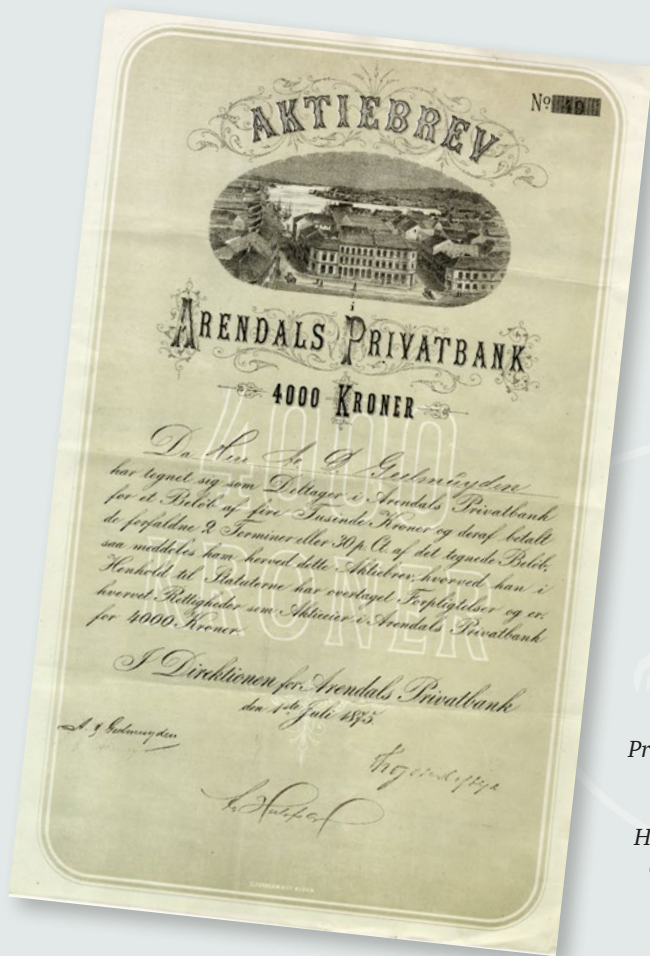 No 49
AKTIEBREV
i
ARENDALS PRIVATBANK
4000 KRONER
4000
KRONER
Da Herr Gedmuyden
har tegnet sig som Deltager i Arendals Privatbank
for et Beløb af fire Tusinde Kroner og deraf betalt
de forfaldne 2 Terminer eller 30 p. Ct. af det tegnede Beløb,
saa meddeles ham herved dette Aktiebrev, hvorved han i
Henhold til Statuterne har overtaget Forpligtelser og er-
hvervet Rettigheder som Aktieeier i Arendals Privatbank
for 4000 Kroner.
I Direktionen for Arendals Privatbank
den 1ste Juli 1875
Pr
H